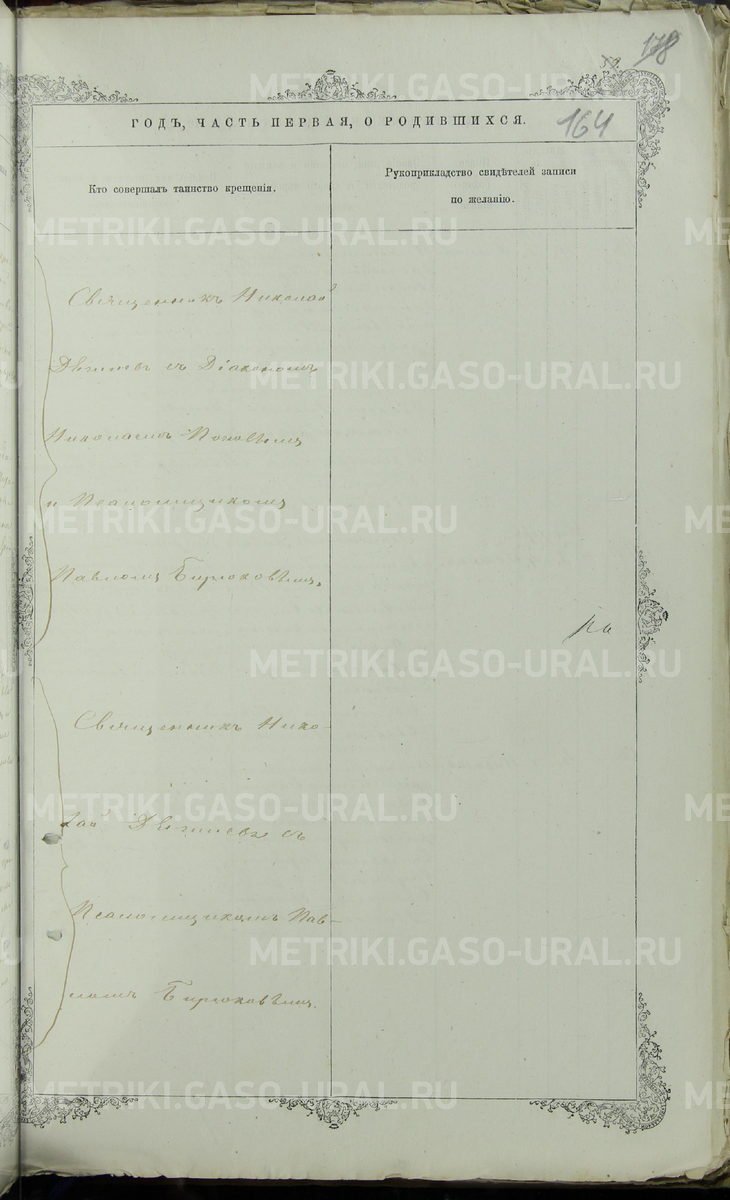 178
164
ГОДЪ, ЧАСТЬ ПЕРВАЯ, О РОДИВШИХСЯ.
Кто совершалъ таинство крещенія.
Рукоприкладство свидѣтелей записи
по желанію.
Священникъ Николай
съ Діакономъ
Николаемъ Поповымъ
и Псаломщикомъ
Павломъ Бирюковымъ.
Священникъ Нико-
лай съ
Псаломщикомъ Пав-
ломъ Бирюковымъ.
METRIKI.GASO-URAL.RU